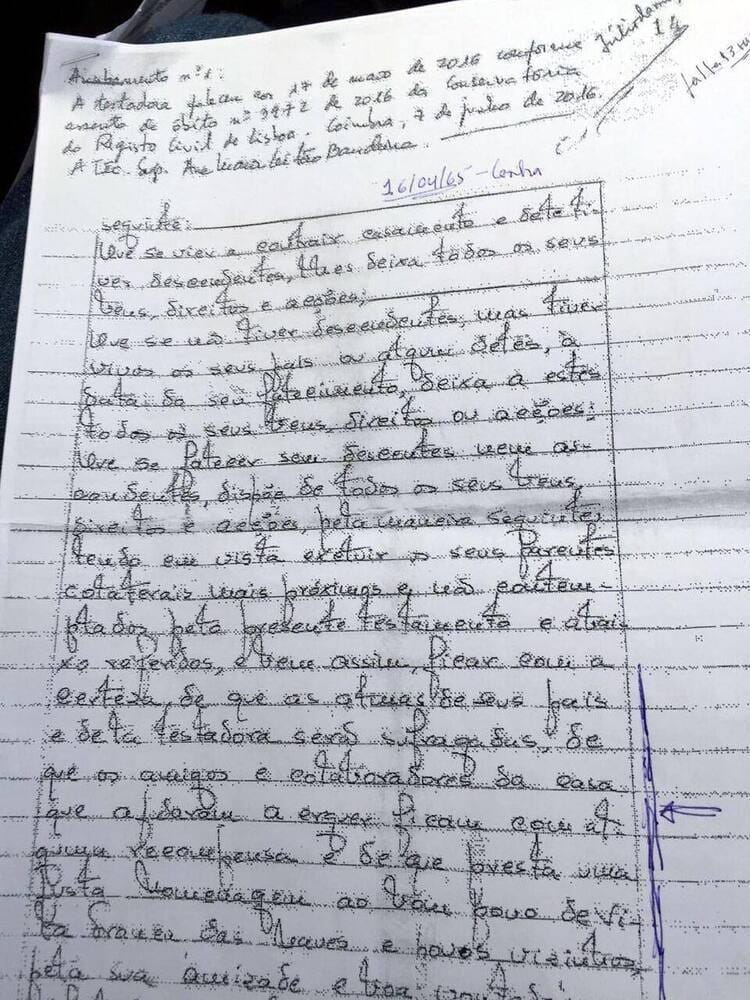 Averbamento nº 1:
A testadora faleceu em 17 de maio de 2016 conforme
assento de óbito nº 3972 de 2016 da Conservatória
do Registo Civil de Lisboa. Coimbra, 7 de junho de 2016.
A Téc. Sup.
14
16/04/65 -
seguinte:
Que se vier a contrair casamento e dele ti-
ver descendentes, lhes deixa todos os seus
bens, direitos e acções;
Que se não tiver descendentes, mas tiver
vivos os seus pais ou algum deles, à
data do seu falecimento, deixa a estes
todos os seus bens, direitos ou acções;
Que se falecer sem descentes nem as-
cendentes, dispõe de todos os seus bens,
direitos e acções, pela maneira seguinte,
tendo em vista excluir os seus parentes
colaterais mais próximos e não contem-
plados pelo presente testamento e abai-
xo referidos, e bem assim, ficar com a
certeza, de que as almas de seus pais
e dela testadora serão sufragadas, de
que os amigos e colaboradores da casa
que ajudaram a erguer ficam com al-
guma recompensa e de que presta uma
justa homenagem ao bom povo de Vi-
la Franca das Naves e povos vizinhos,
pela sua amizade e boa